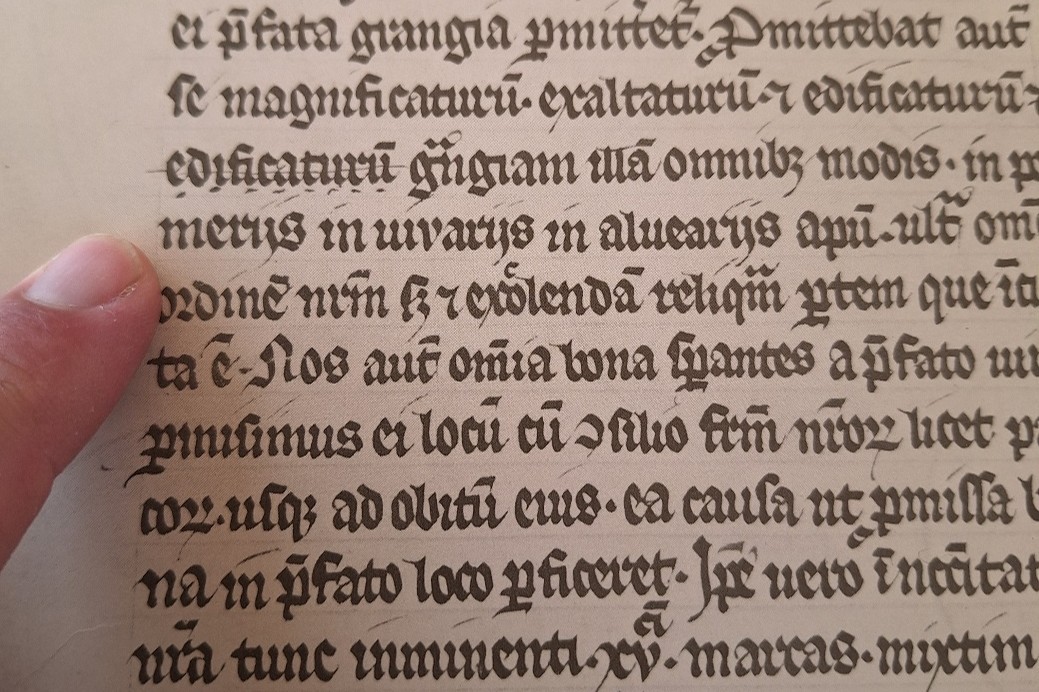 ei p̄fata grangia ꝓmittet᷑. Ꝓmittebat aut̄
se magnificaturū. exaltaturū. ⁊ edificaturū
edificaturū gͣngiam illā omnibꝫ modis. in
merijs in uivarijs in aluearijs apū. ult᷑ om̄
ordinē nr̄m sꝫ ⁊ excolendā reliqͣm ꝑtem que
ta ē. Nos aut̄ om̄ia bona sꝑantes a p̄fato
ꝑmisimus ei locū cū ꝯsilio frm̄ nr̄oꝝ licet
coꝝ. usqꝫ ad obitū eius. ea causa ut ꝓmissa
na in p̄fato loco ꝑficeret. Ip̄e uero
nr̄a tunc inminenti. xv. marcas. mixtim